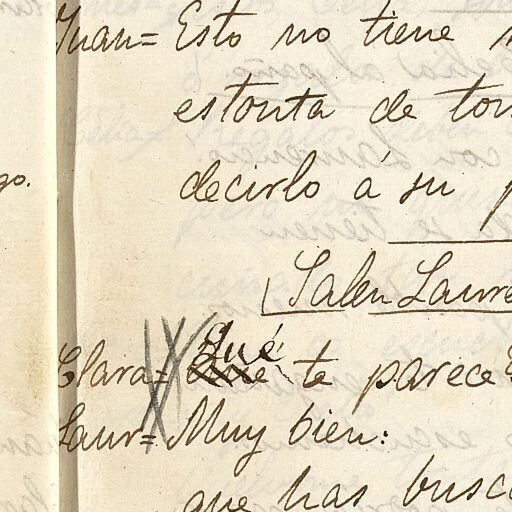 go.
Juan= Esto no tiene
estonta de
decirlo á su
Salen
Clara= Qué te parece
Laur= Muy bien:
que has